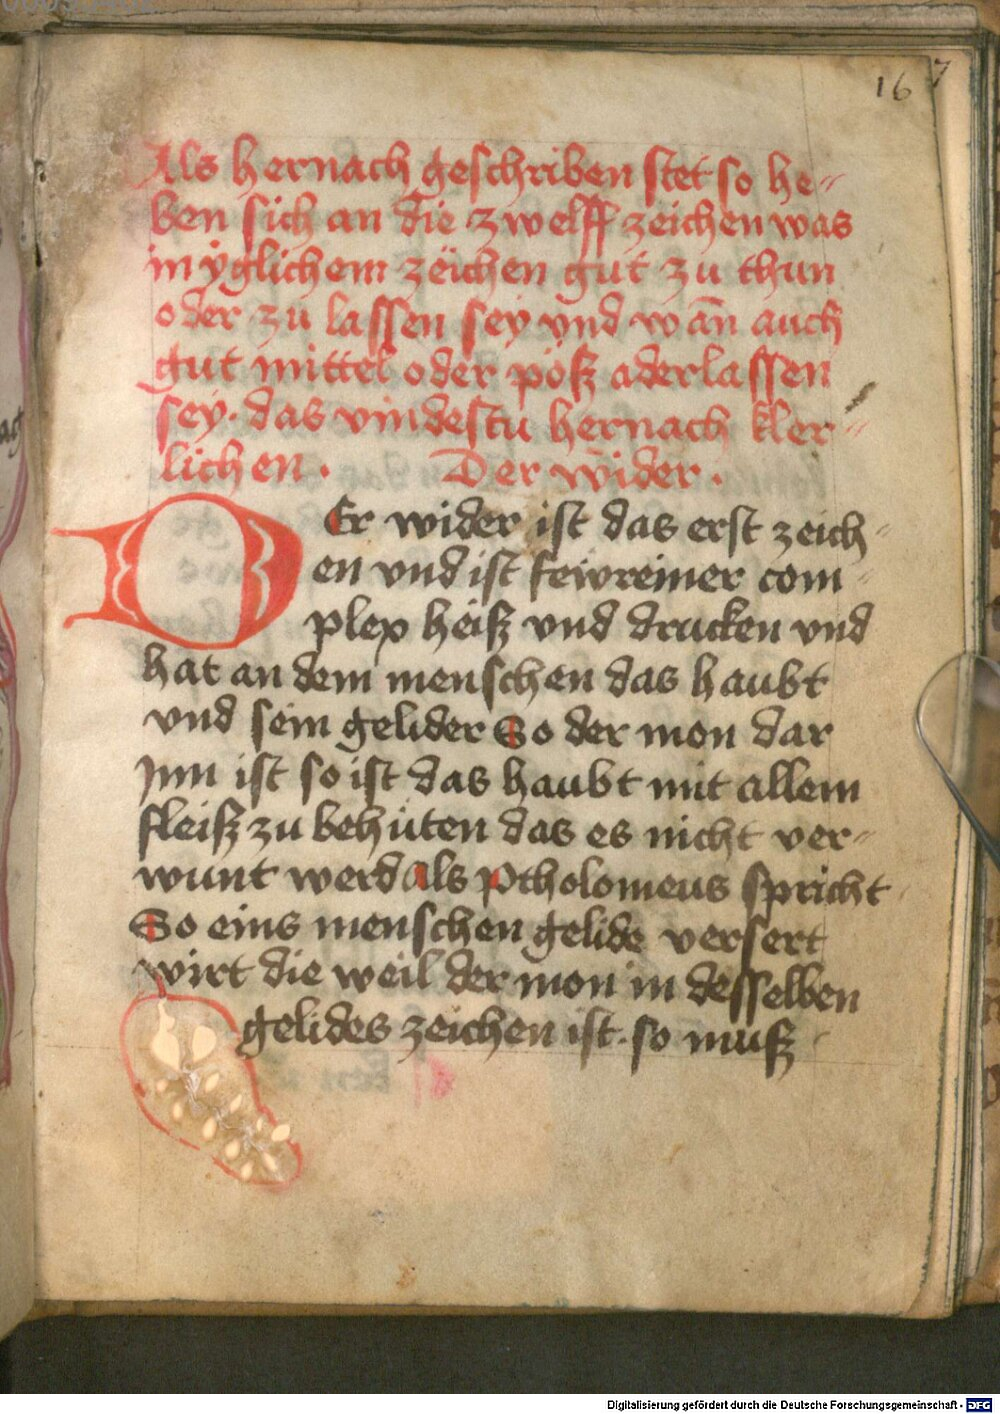 16 7
Als hernach geschriben stet so he-
ben sich an die zwelff zeichen was
in yglichem zeichen gut zu thun
oder zu lassen sey vnd wān auch
gut mittel oder pöß aderlassen
sey. das vindestu hernach kler-
lichen. Der wider.
DEr wider ist das erst zeich-
en vnd ist fewreiner com-
plex heiß vnd drucken vnd
hat an dem menschen das haubt
vnd sein gelider So der mon dar
Jnn ist so ist das haubt mit allem
fleiß zu behüten das es nicht ver-
wunt werd als Ptholomeus spricht
So eins menschen gelide versert
wirt die weil der mon in desselben
gelides zeichen ist. so muß
Digitalisierung gefördert durch die Deutsche Forschungsgemeinschaft - DFG